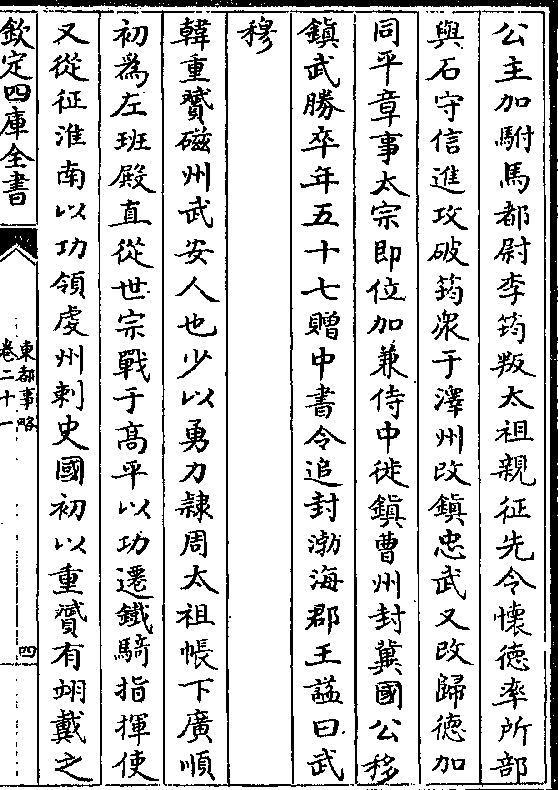 公主加駙馬都尉李筠叛太祖親征先令懷德率所部
與石守信進攻破筠衆于澤州改鎮忠武又改歸德加
同平章事太宗即位加兼侍中徙鎮曹州封冀國公移
鎮武勝卒年五十七贈中書令追封渤海郡王諡曰武
穆
韓重贇磁州武安人也少以勇力隷周太祖帳下廣順
初為左班殿直從世宗戰于髙平以功遷鐵騎指揮使
又從征淮南以功領虔州刺史國初以重贇有翊戴之
欽定四庫全書
東都事略
卷二十一
四